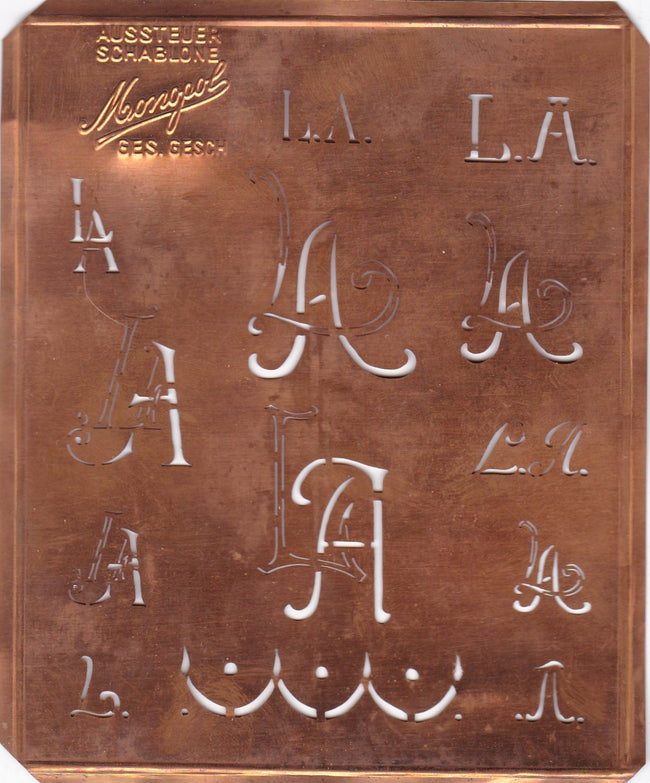 AUSSTEUER
SCHABLONE
Monopol
GES. GESCH
L.A. L.A.
LA
LA LA
LA
LA
L.A.
LA
LA
L. A.